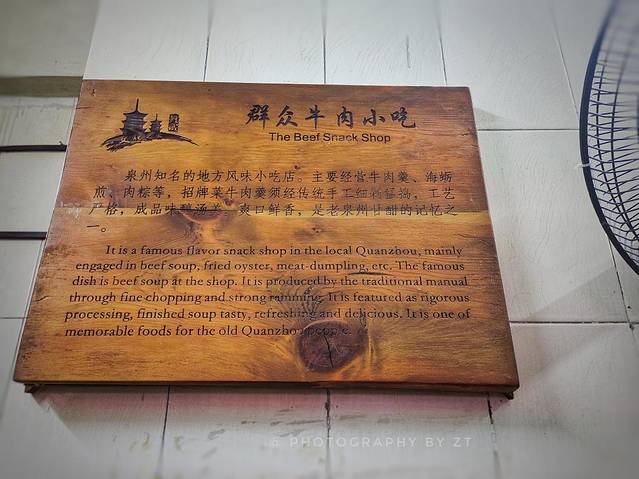 群众牛肉小吃
The Beef Snack Shop
泉州知名的地方风味小吃店。主要经营牛肉羹、海蛎
煎、肉粽等，招牌菜牛肉羹须经传统手工细剁猛捣，工艺
严格，成品味醇汤美、爽口鲜香，是老泉州甘甜的记忆之
一。
It is a famous flavor snack shop in the local Quanzhou, mainly
engaged in beef soup, fried oyster, meat-dumpling, etc. The famous
dish is beef soup at the shop. It is produced by the traditional manual
through fine chopping and strong ramming. It is featured as rigorous
processing, finished soup tasty, refreshing and delicious. It is one of
memorable foods for the old Quanzhou people.
PHOTOGRAPHY BY ZT